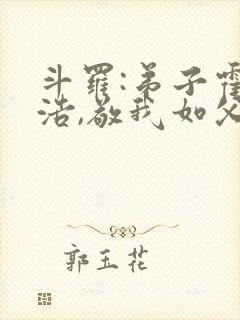 斗罗:弟子霍
浩,敬我如父
郭玉花